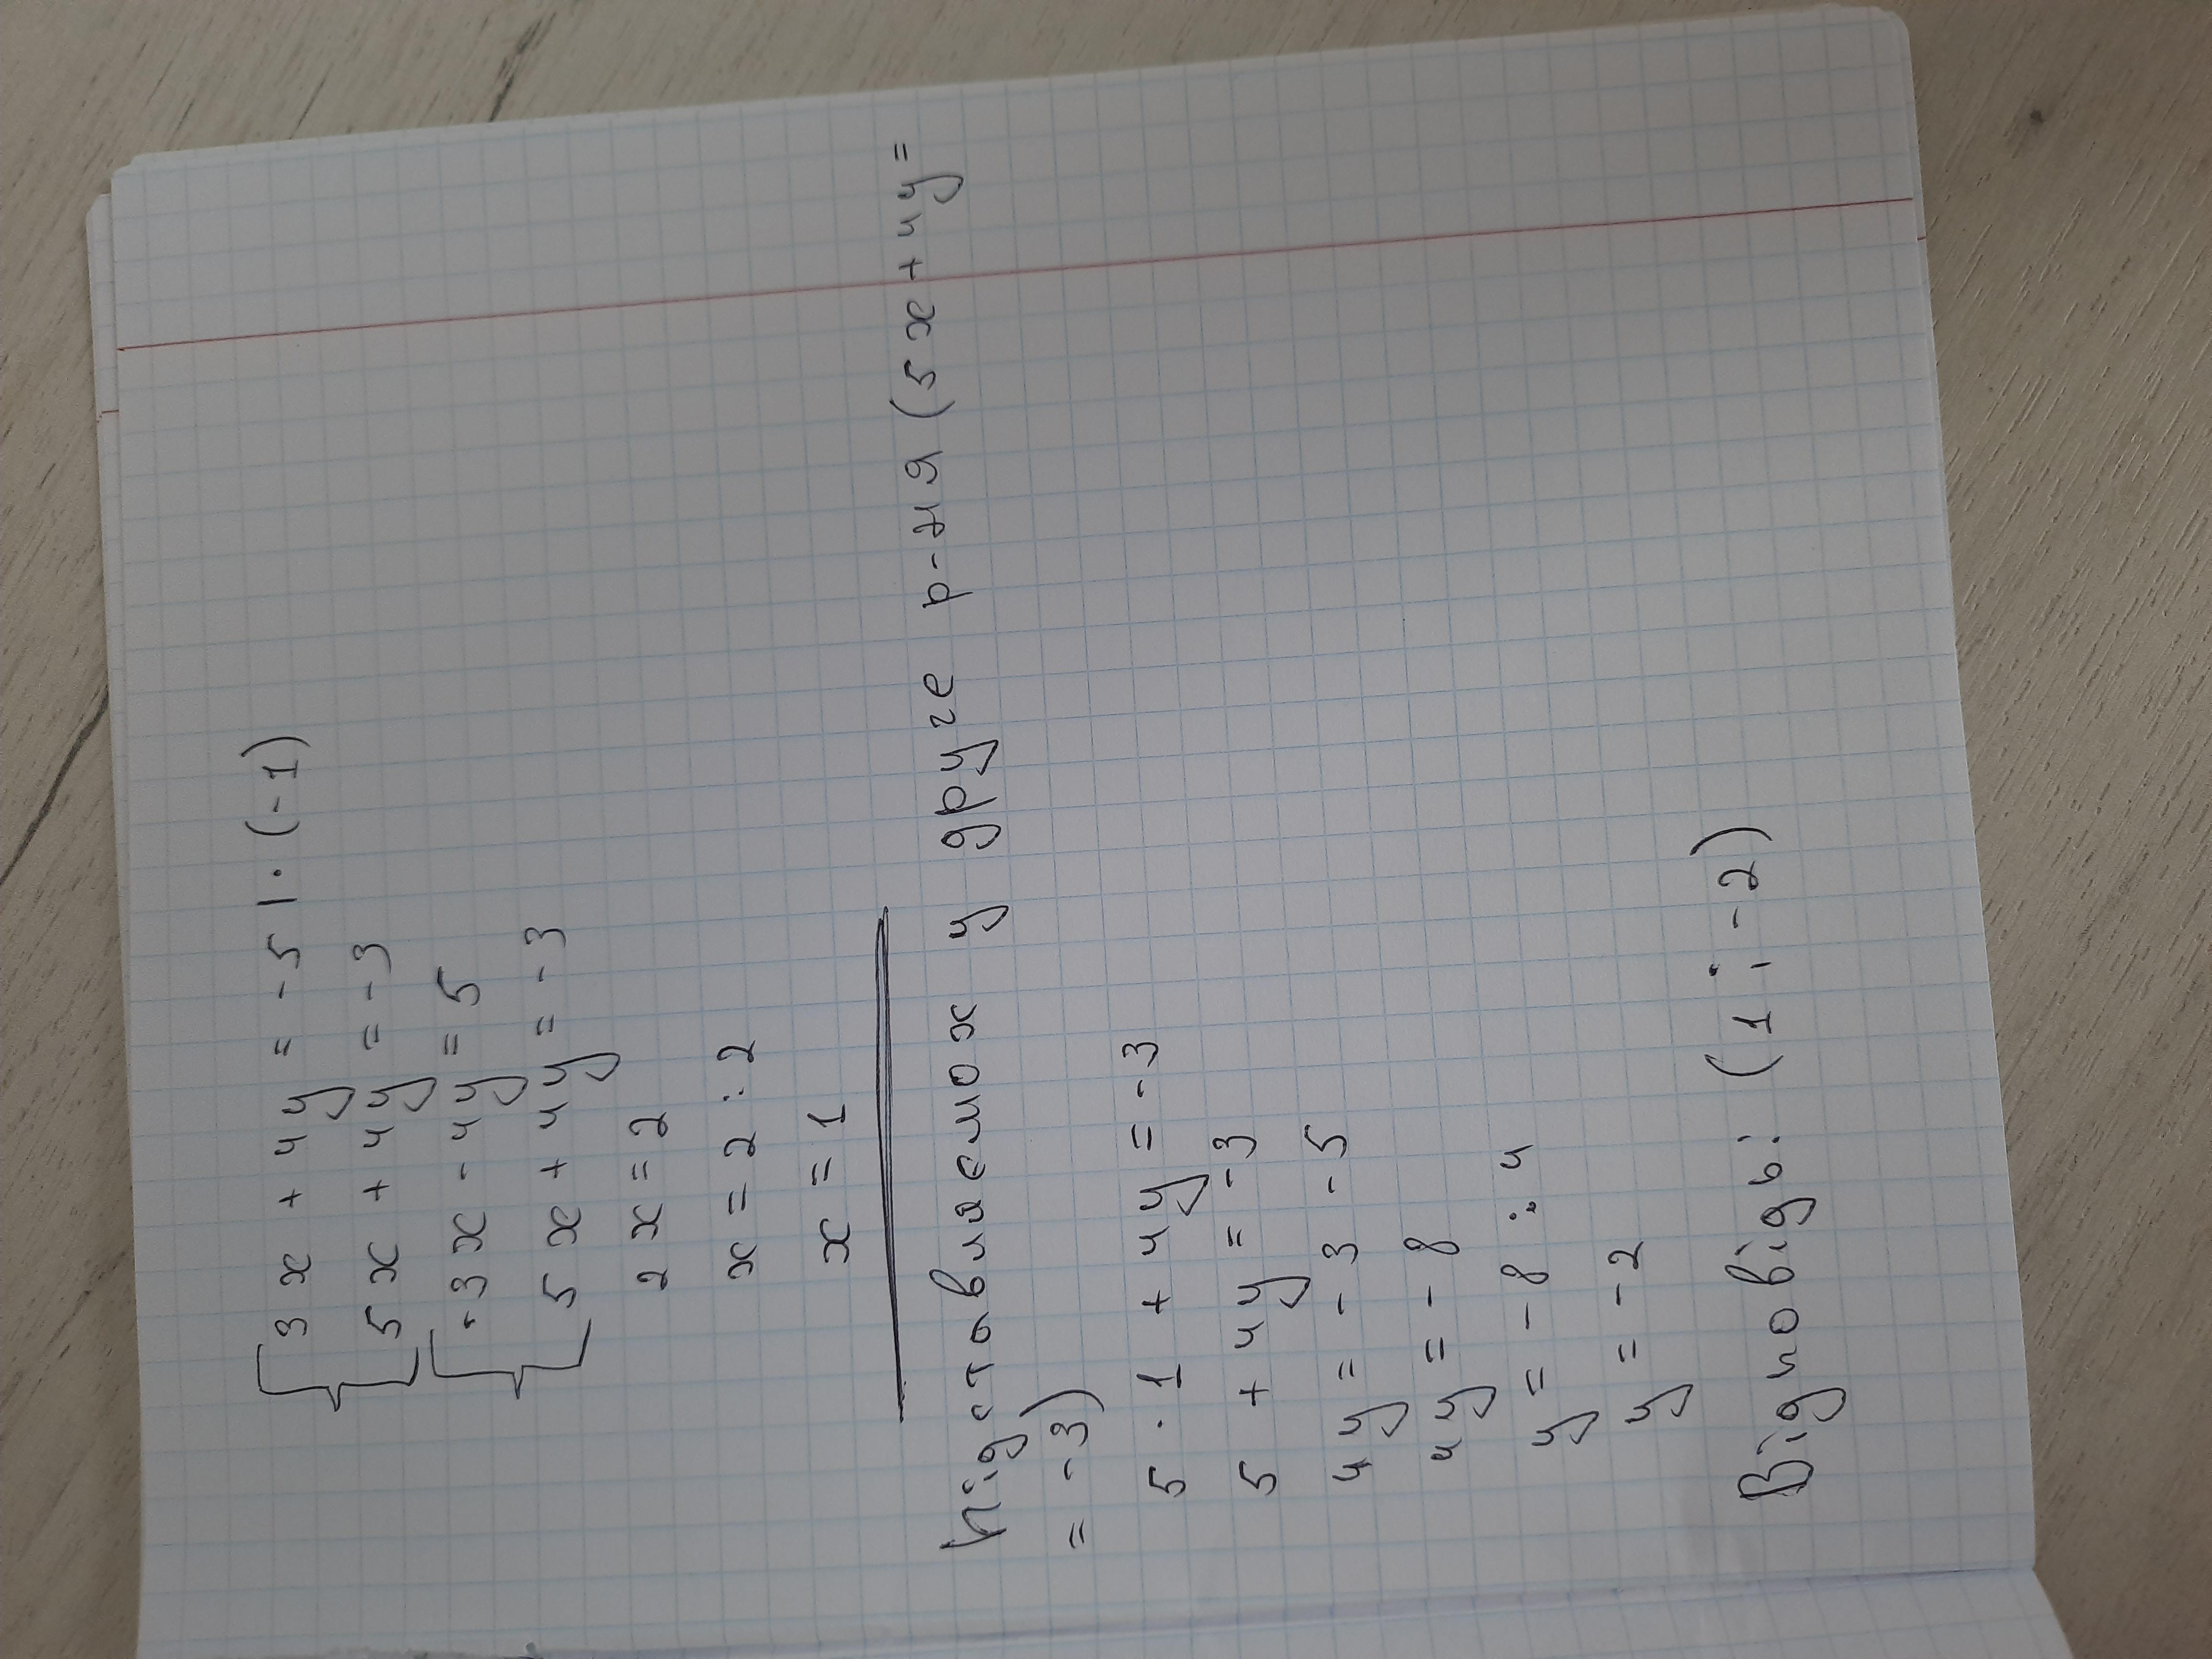 3x + 4y = -5 | · (-1)
5x + 4y = -3
-3x - 4y = 5
5x + 4y = -3
2x = 2
x = 2 : 2
x = 1
Підставляємо x у друге р-ня (5x + 4y =
= -3)
5 · 1 + 4y = -3
5 + 4y = -3
4y = -3 -5
4y = -8
y = -8 : 4
y = -2
Відповідь: (1 ; -2)